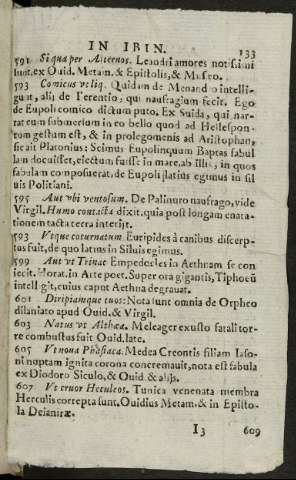 IN IBIN. 133
591 Si qua per Alternos. Leandri amores notissimi
sunt, ex Ouid. Metam. & Epistolis, & Museo.
593 Comicus vt liq. Quidam de Menandro intelli-
gunt, alij de Terentio, qui naufragium fecit. Ego
de Eupoli comico dictum puto. Ex Suida, qui nar-
rat eum submersum in eo bello quod ad Hellespon-
tom gestum est, & in prolegomenis ad Aristophan.
sic ait Platonius: Scimus Eupolinquum Baptas fabul
lam docuisset, electum fuisse in mare, ab illis, in quos
fabulam composuerat, de Eupoli platius egimus in sil
uis Politiani.
595 Aut vbi ventosum. De Palinuro naufrago, vide
Virgil. Humo contacta dixit. quia post longam enata-
tionem tacta terra interijt.
593 Vtque coturnatum Euripides à canibus discerp-
tus fuit, de quo latius in Siluis egimus.
599 Aut vt Trinac Empedocles in Aethnam se con
iecit. Horat. in Arte poet. Super ora gigantis, Tiphoeũ
intelligit, cuius caput Aethna degrauat.
601 Diripiamque tuos: Nota sunt omnia de Orpheo
dilaniato apud Ouid. & Virgil.
603 Natus vt Althæa. Meleager exusto fatali tor-
re combustus fuit Ouid. late.
605 Vt noua Phasiaca. Medea Creontis filiam Iaso-
ni nuptam ignita corona concremauit, nota est fabula
ex Diodoro Siculo, & Ouid. & alijs.
607 Vt cruor Heculeos. Tunica venenata membra
Herculis correpta sunt. Ouidius Metam. & in Episto-
la Deianiræ.
I 3 609